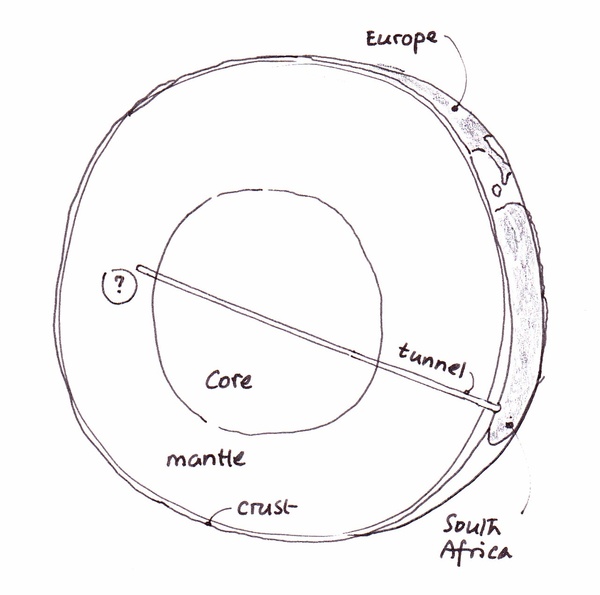 Europe
?
tunnel
Core
mantle
crust
South
Africa